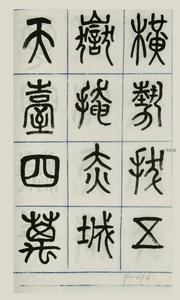 橫勢拔五
嶽掩赤城
天臺四萬